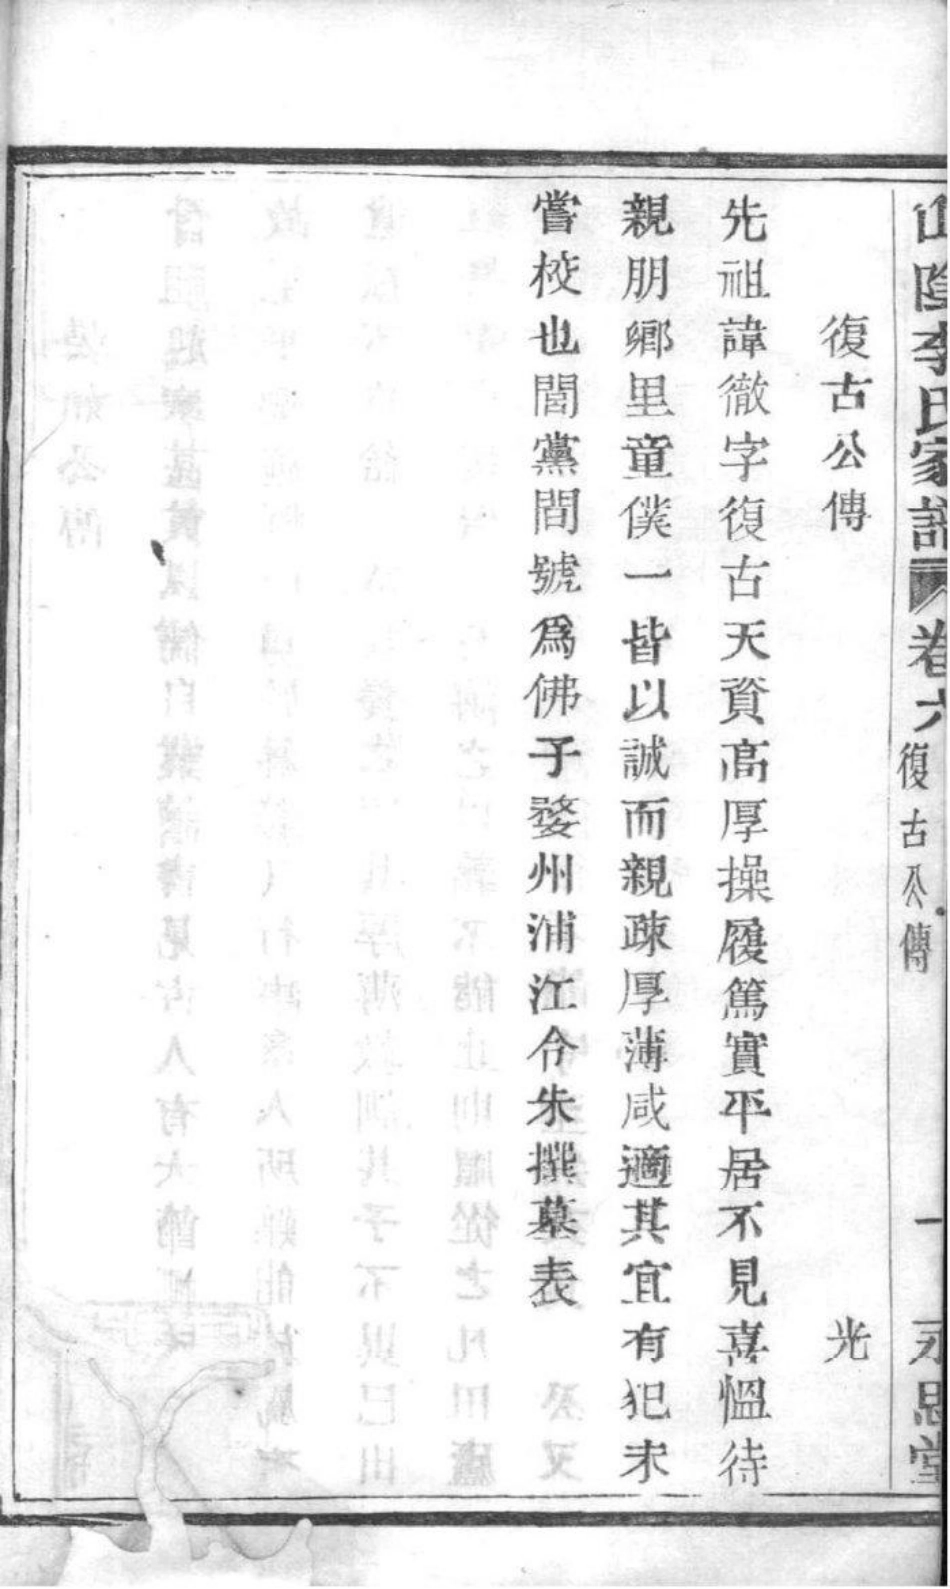 山陰李氏家譜 卷六 復古公傳 一 永思堂
復古公傳 光
先祖諱徹字復古天資高厚操履篤實平居不見喜慍待
親朋鄉里童僕一皆以誠而親疎厚薄咸適其宜有犯未
嘗校也閭黨間號為佛子婺州浦江令朱撰墓表